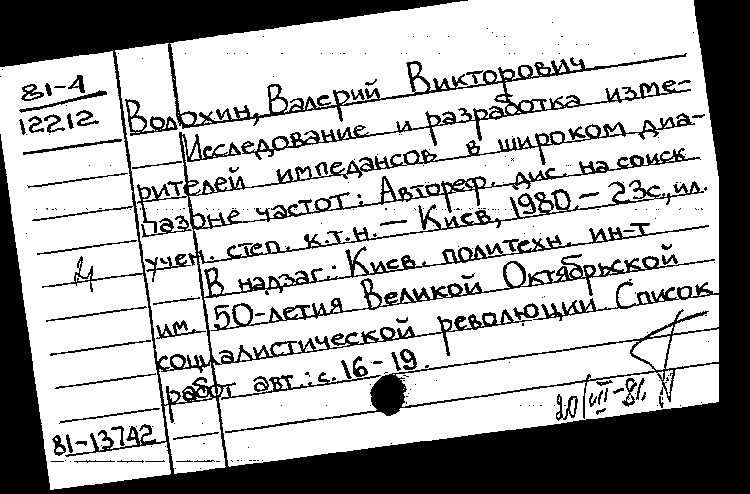 81-4
12212
Волохин, Валерий Викторович
Исследование и разработка изме-
рителей импедансов в широком диа-
пазоне частот: Автореф. дис. на соиск
учен. степ. к.т.н. — Киев, 1980. — 23с., ил.
В надзаг.: Киев. политехн. ин-т
им. 50-летия Великой Октябрьской
социалистической революции Список
работ авт.: с. 16-19.
81-13742
20/VII-81.